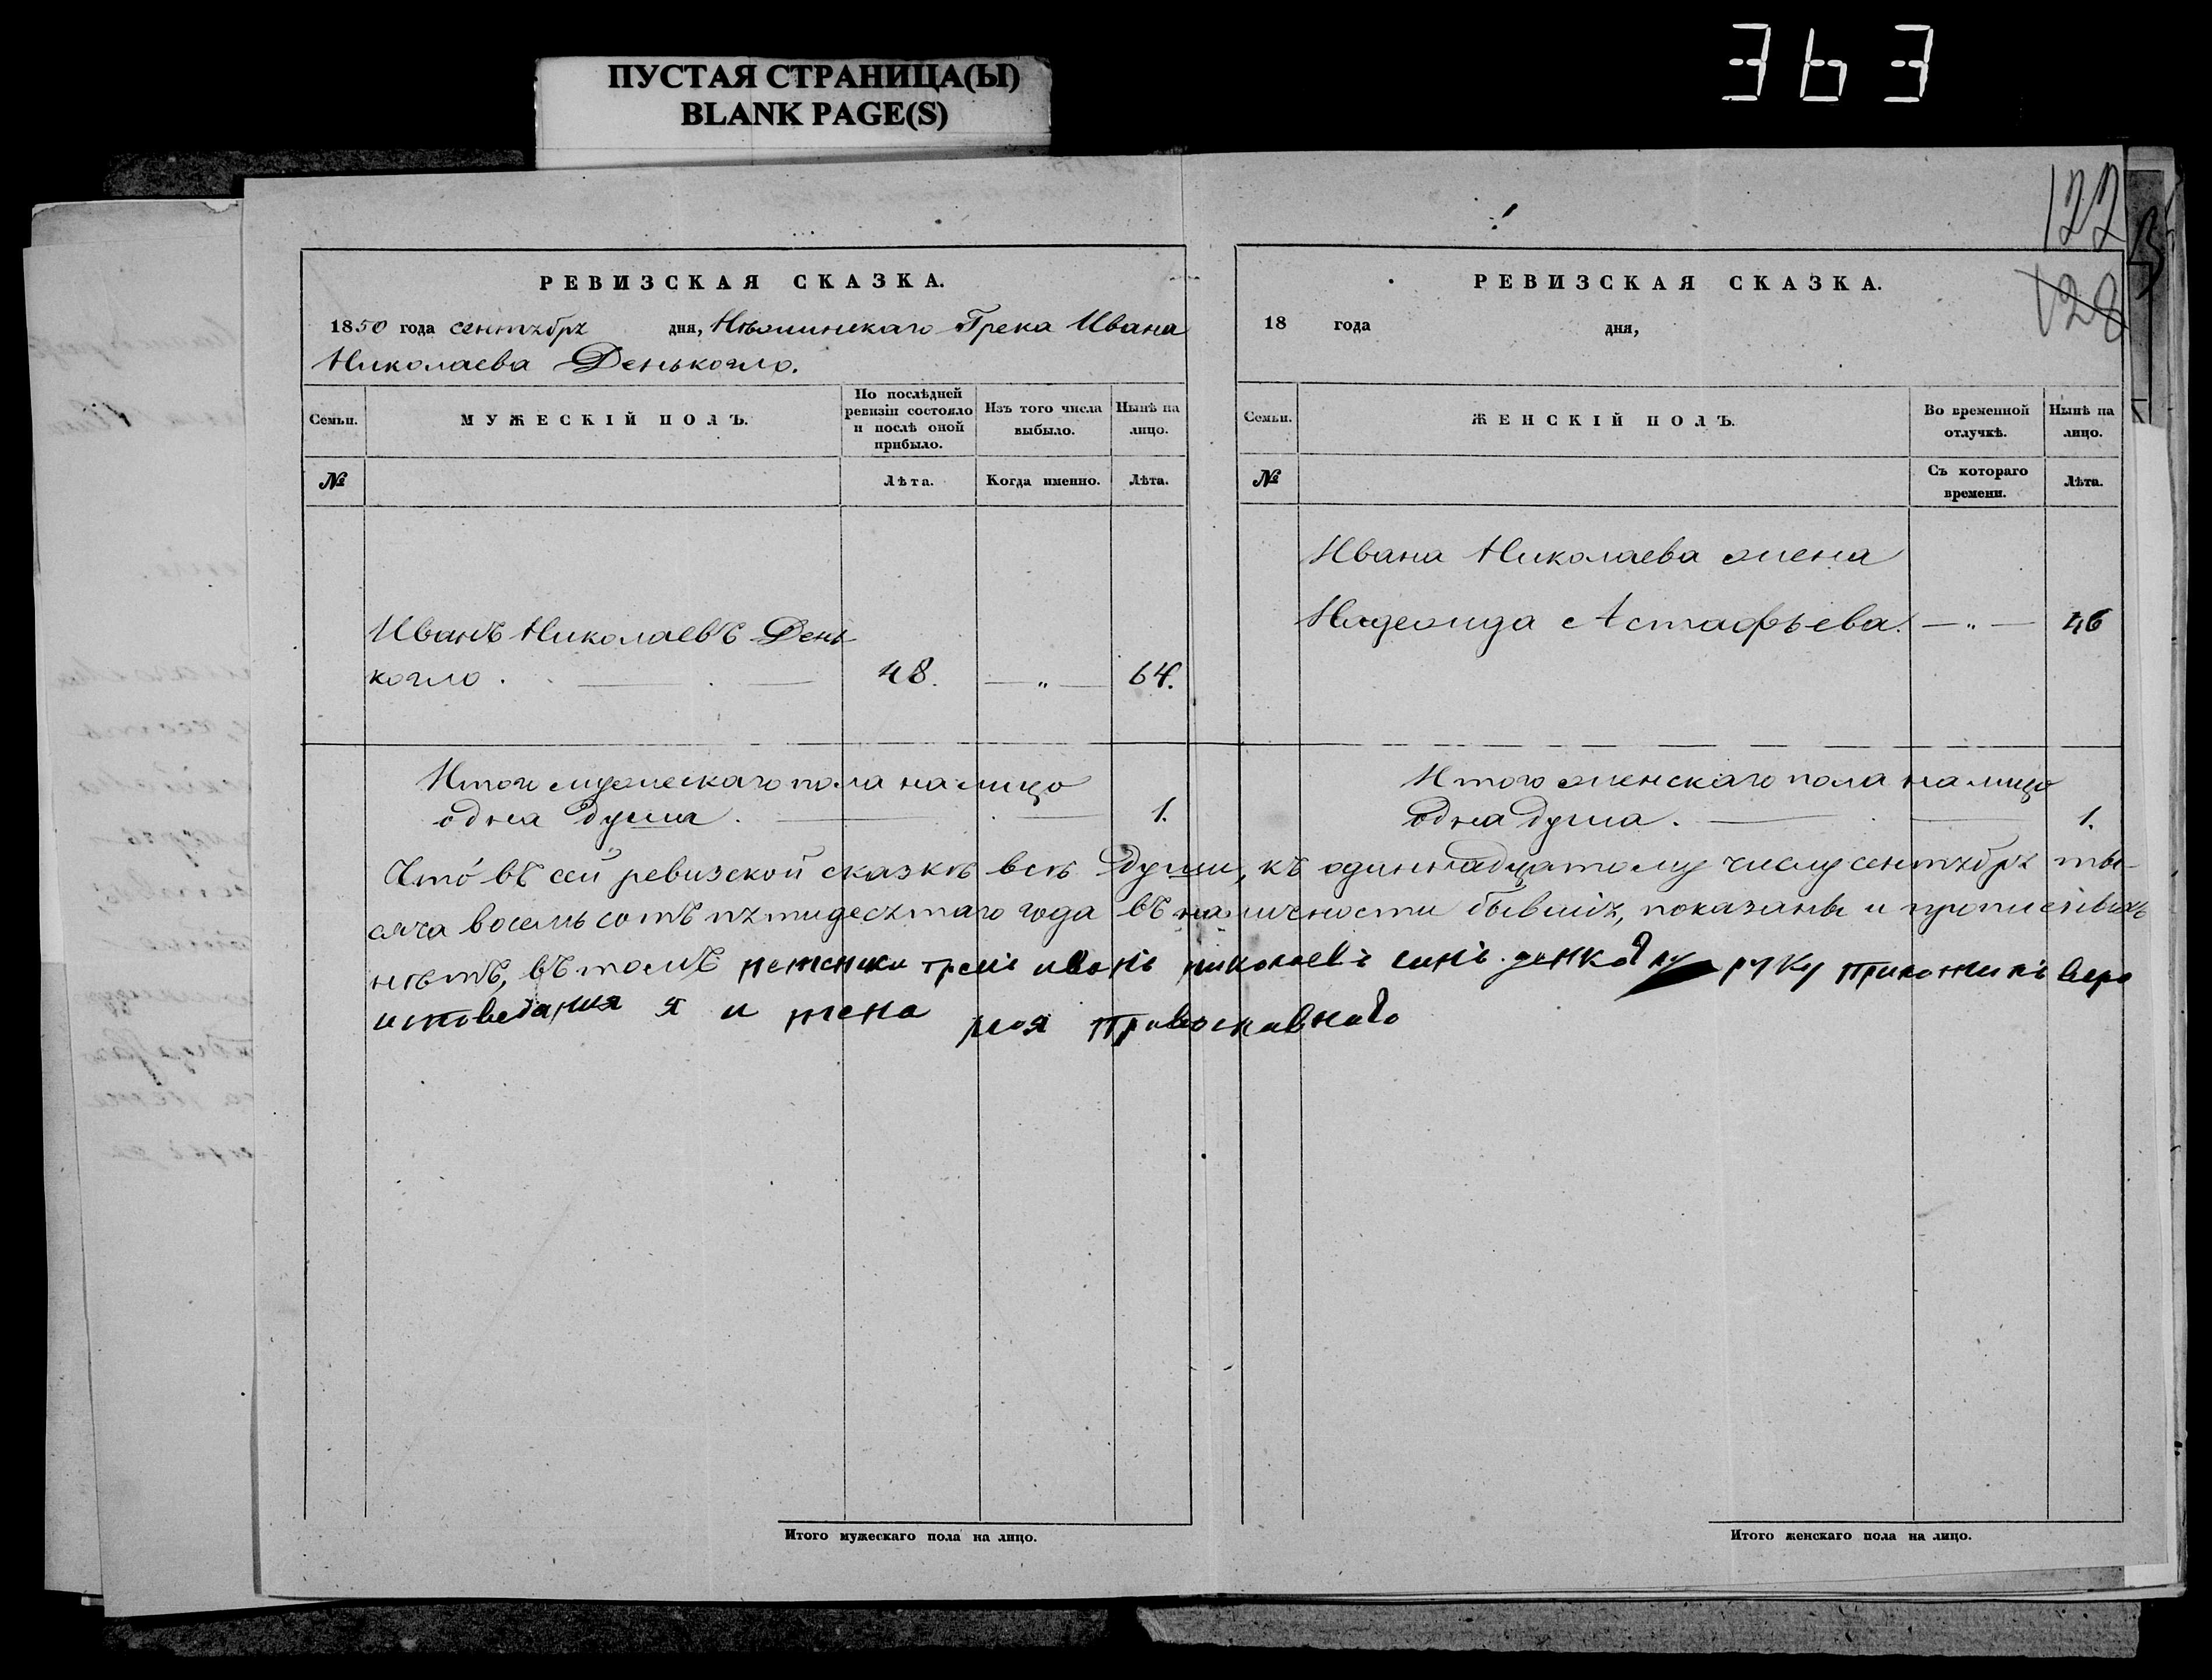 363
ПУСТАЯ СТРАНИЦА(Ы)
BLANK PAGE(S)
122
128
РЕВИЗСКАЯ СКАЗКА.
1850 года сентября дня, Нѣжинскаго Грека Ивана
Николаева Денькогло.
Семьи.
МУЖЕСКІЙ ПОЛЪ.
По послѣдней ревизіи состояло и послѣ оной прибыло.
Изъ того числа выбыло.
Нынѣ на лицо.
№
Лѣта.
Когда именно.
Лѣта.
Иванъ Николаевъ День-
когло. 48. — „ — 64.
Итого мужескаго пола на лицо
одна душа. 1.
РЕВИЗСКАЯ СКАЗКА.
18 года дня,
Семьи.
ЖЕНСКІЙ ПОЛЪ.
Во временной отлучкѣ.
Нынѣ на лицо.
№
Съ котораго времени.
Лѣта.
Ивана Николаева жена
Надежда Астафьева. — „ — 46
Итого женскаго пола на лицо
одна душа. 1.
Что въ сей ревизской сказкѣ всѣ души, къ одиннадцатому числу сентября ты-
сяча восемь сотъ пятидесятаго года въ наличности бывшія, показаны и прописныхъ
нѣтъ, въ томъ грекъ иванъ николаевъ синъ руку приложилъ веро
исповедания я и жена моя православнаго
Итого мужескаго пола на лицо.
Итого женскаго пола на лицо.